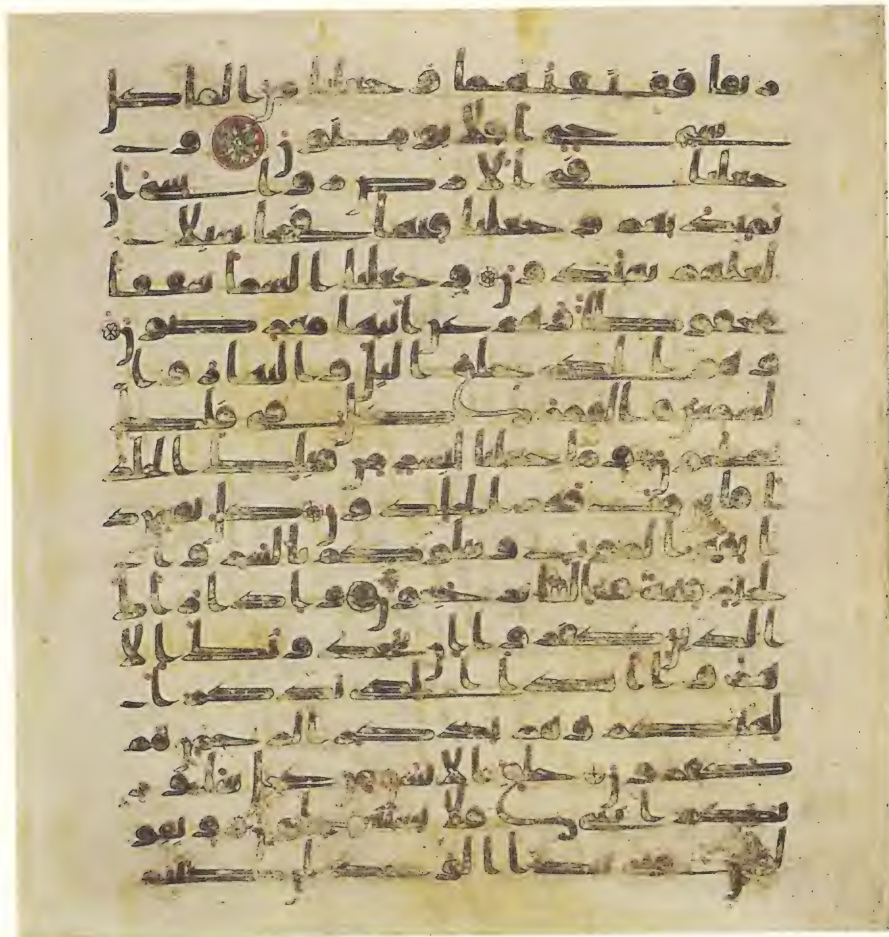 رتقا ففتقنهما و جعلنا من الما كل
شي حي افلا يومنون و
جعلنا في الارض روسي ان
تميد بهم و جعلنا فيها فجاجا سبلا
لعلهم يهتدون و جعلنا السما سقفا
محفوظا و هم عن ايتها معرضون
و هو الذي خلق اليل و النهار و ا
لشمس و القمر كل في فلك
يسبحون و ما جعلنا لبشر من قبلك الخلد
افاين مت فهم الخلدون كل نفس ذ
ايقة الموت و نبلوكم بالشر و ا
لخير فتنة و الينا ترجعون و اذا راك
الذين كفروا ان يتخذونك الا
هزوا اهذا الذي يذكر ا
لهتكم و هم بذكر الرحمن هم
كفرون خلق الانسن من عجل ساو
ريكم ايتي فلا تستعجلون و يقو
لون متى هذا الوعد ان كنتم